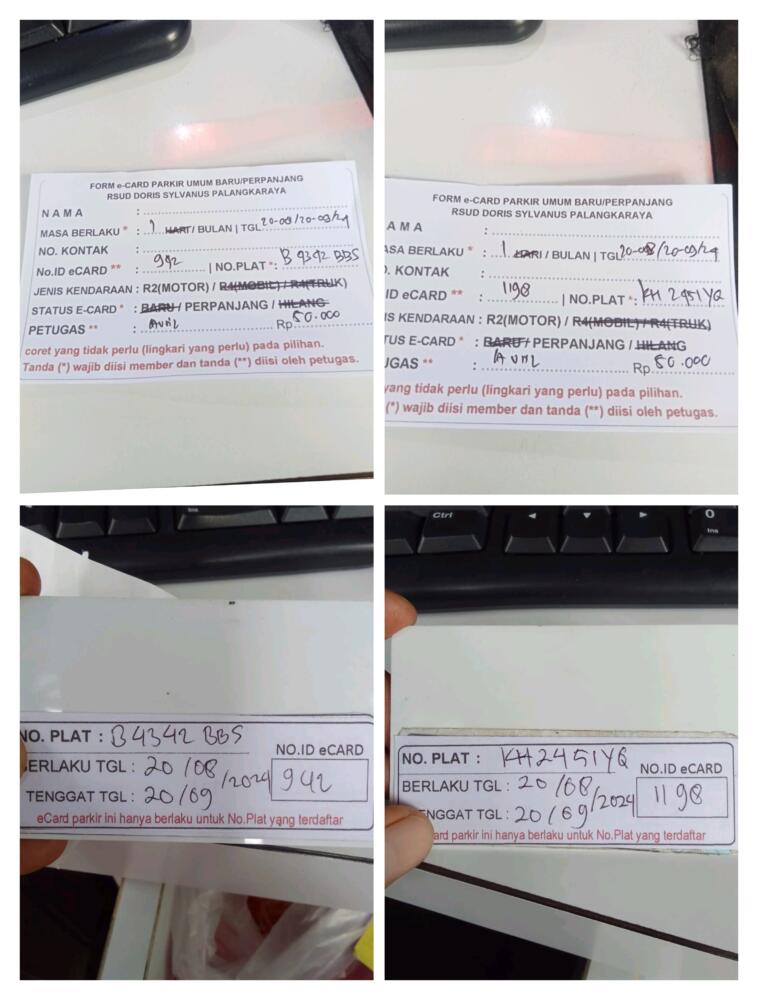 FORM e-CARD PARKIR UMUM BARU/PERPANJANG
RSUD DORIS SYLVANUS PALANGKARAYA
NAMA :
MASA BERLAKU * : 1 HARI / BULAN | TGL 20-08/20-09/24
NO. KONTAK :
No.ID eCARD ** : 942 | NO.PLAT *: B 4342 BBS
JENIS KENDARAAN : R2(MOTOR) / R4(MOBIL) / R4(TRUK)
STATUS E-CARD * : BARU / PERPANJANG / HILANG
PETUGAS ** : Avril Rp. 50.000
coret yang tidak perlu (lingkari yang perlu) pada pilihan.
Tanda (*) wajib diisi member dan tanda (**) diisi oleh petugas.
FORM e-CARD PARKIR UMUM BARU/PERPANJANG
RSUD DORIS SYLVANUS PALANGKARAYA
AMA :
ASA BERLAKU * : 1 HARI / BULAN | TGL 20-08/20-09/24
. KONTAK :
ID eCARD ** : 1198 | NO.PLAT *: KH 2451YQ
IS KENDARAAN : R2(MOTOR) / R4(MOBIL) / R4(TRUK)
TUS E-CARD * : BARU / PERPANJANG / HILANG
UGAS ** : Avril Rp. 50.000
yang tidak perlu (lingkari yang perlu) pada pilihan.
(*) wajib diisi member dan tanda (**) diisi oleh petugas.
Ins
NO. PLAT : B 4342 BBS
NO.ID eCARD
BERLAKU TGL : 20/08/2024
942
TENGGAT TGL : 20/09
eCard parkir ini hanya berlaku untuk No.Plat yang terdaftar
Ctrl
0
Ins
NO. PLAT : KH2451YQ
NO.ID eCARD
BERLAKU TGL : 20/08/2024
1198
ENGGAT TGL : 20/09
ard parkir ini hanya berlaku untuk No.Plat yang terdaftar